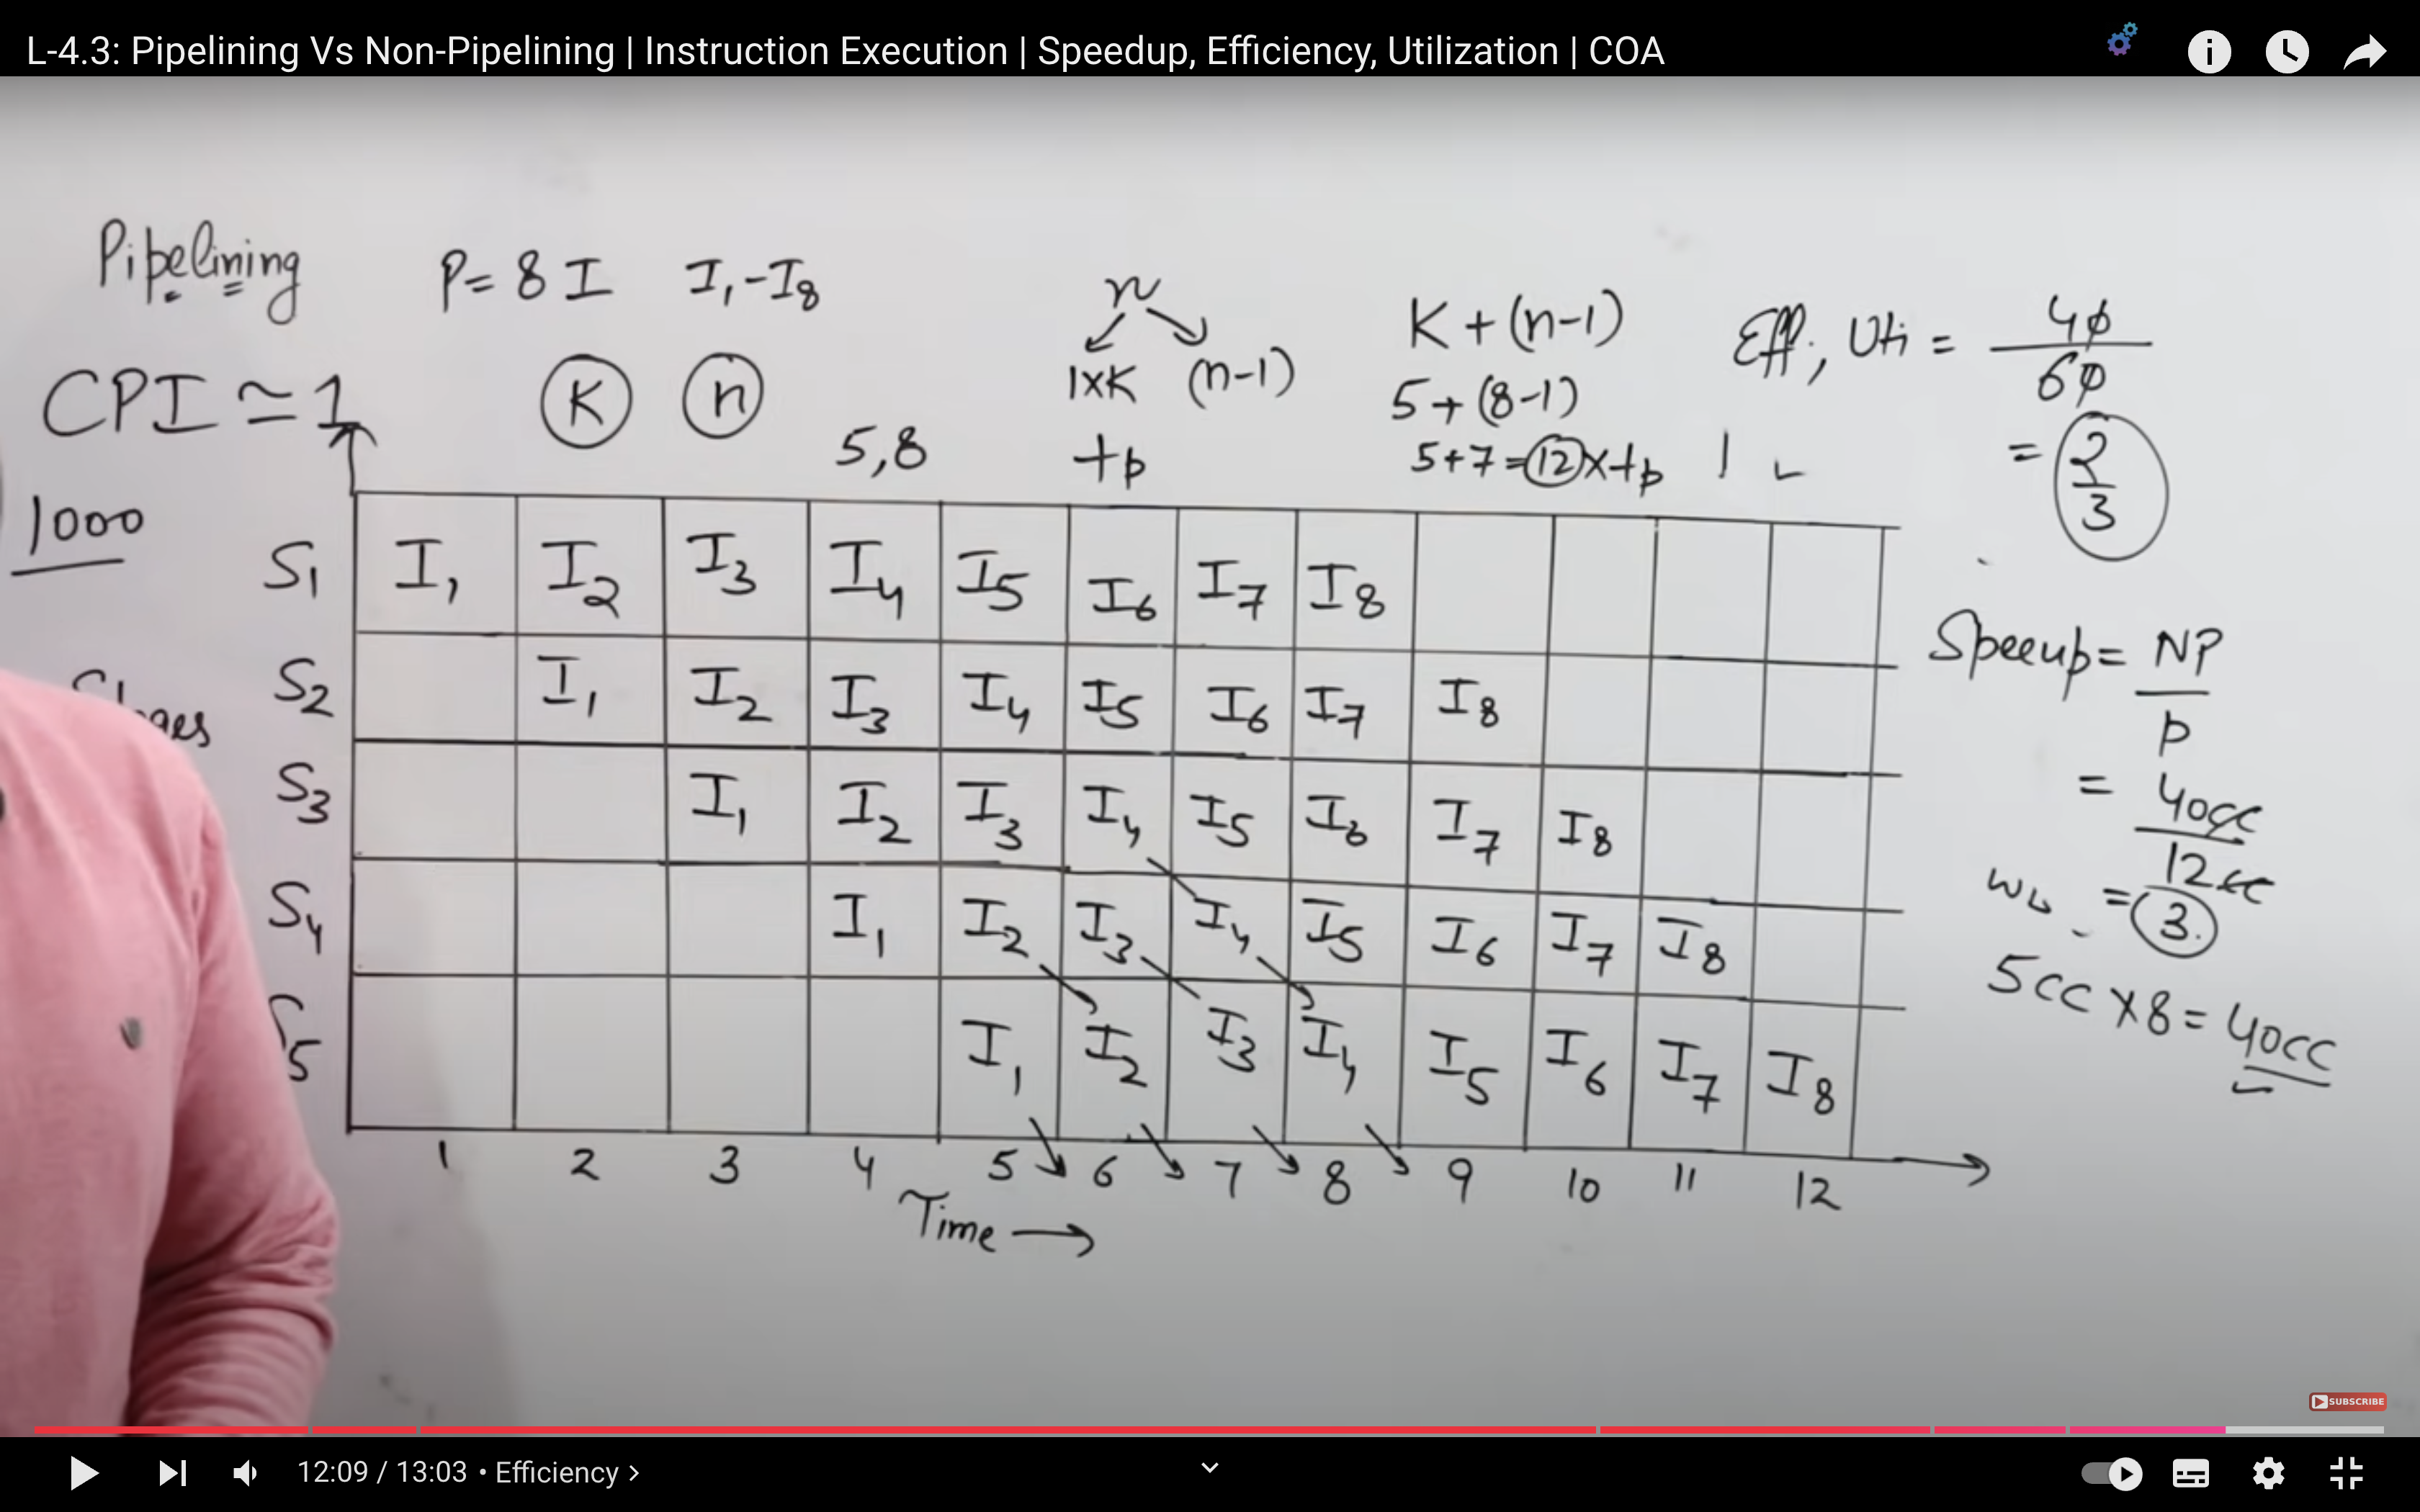 L-4.3: Pipelining Vs Non-Pipelining | Instruction Execution | Speedup, Efficiency, Utilization | COA
Pipelining
P= 8 I I₁-I₈
n
1xK (n-1)
K+(n-1)
Eff, Uti = 40/60
= 2/3
CPI ≃ 1
K n
5,8
tp
5+(8-1)
5+7=12xtp
1000
S₁ I₁ I₂ I₃ I₄ I₅ I₆ I₇ I₈
S₂ I₁ I₂ I₃ I₄ I₅ I₆ I₇ I₈
S₃ I₁ I₂ I₃ I₄ I₅ I₆ I₇ I₈
S₄ I₁ I₂ I₃ I₄ I₅ I₆ I₇ I₈
S₅ I₁ I₂ I₃ I₄ I₅ I₆ I₇ I₈
1 2 3 4 5 6 7 8 9 10 11 12
Time
Speeup= NP/P
= 40cc/12cc
= 3.
5cc x8= 40cc
SUBSCRIBE
12:09 / 13:03 • Efficiency >